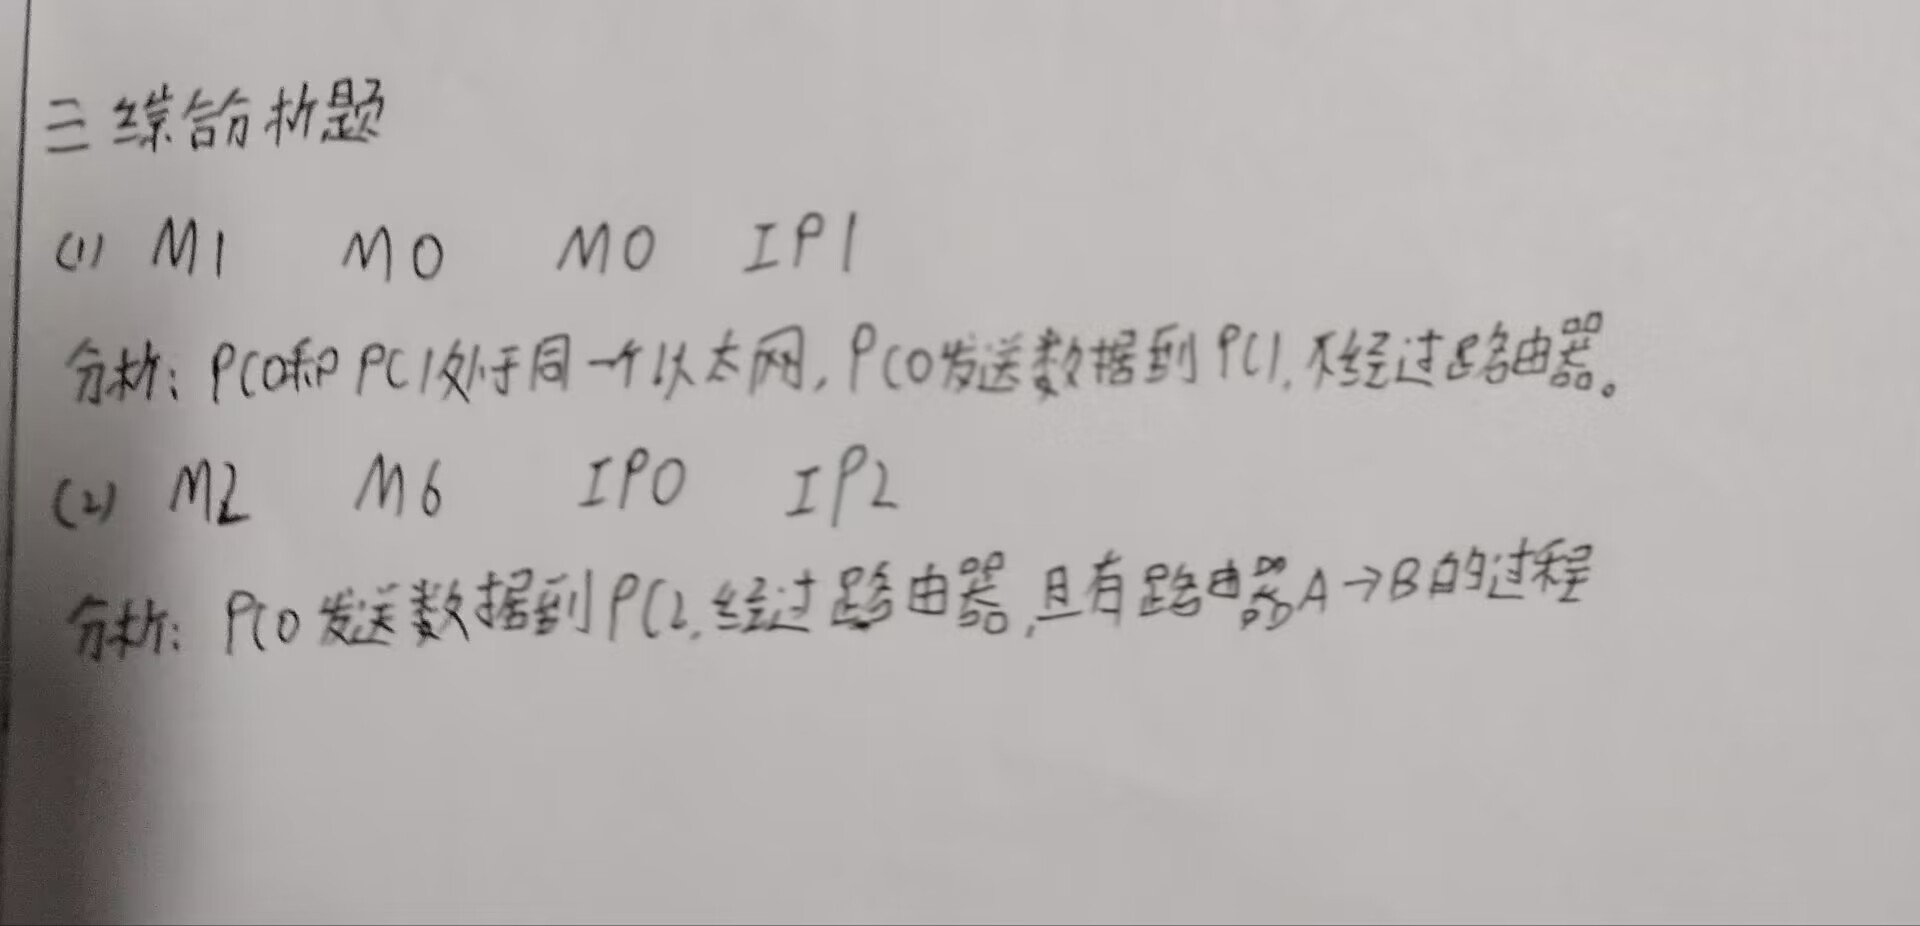 三 综合分析题
(1) M1 M0 M0 IP1
分析: PC0和PC1处于同一个以太网, PC0发送数据到PC1, 不经过路由器。
(2) M2 M6 IP0 IP2
分析: PC0发送数据到PC2, 经过路由器, 且有路由器A→B的过程